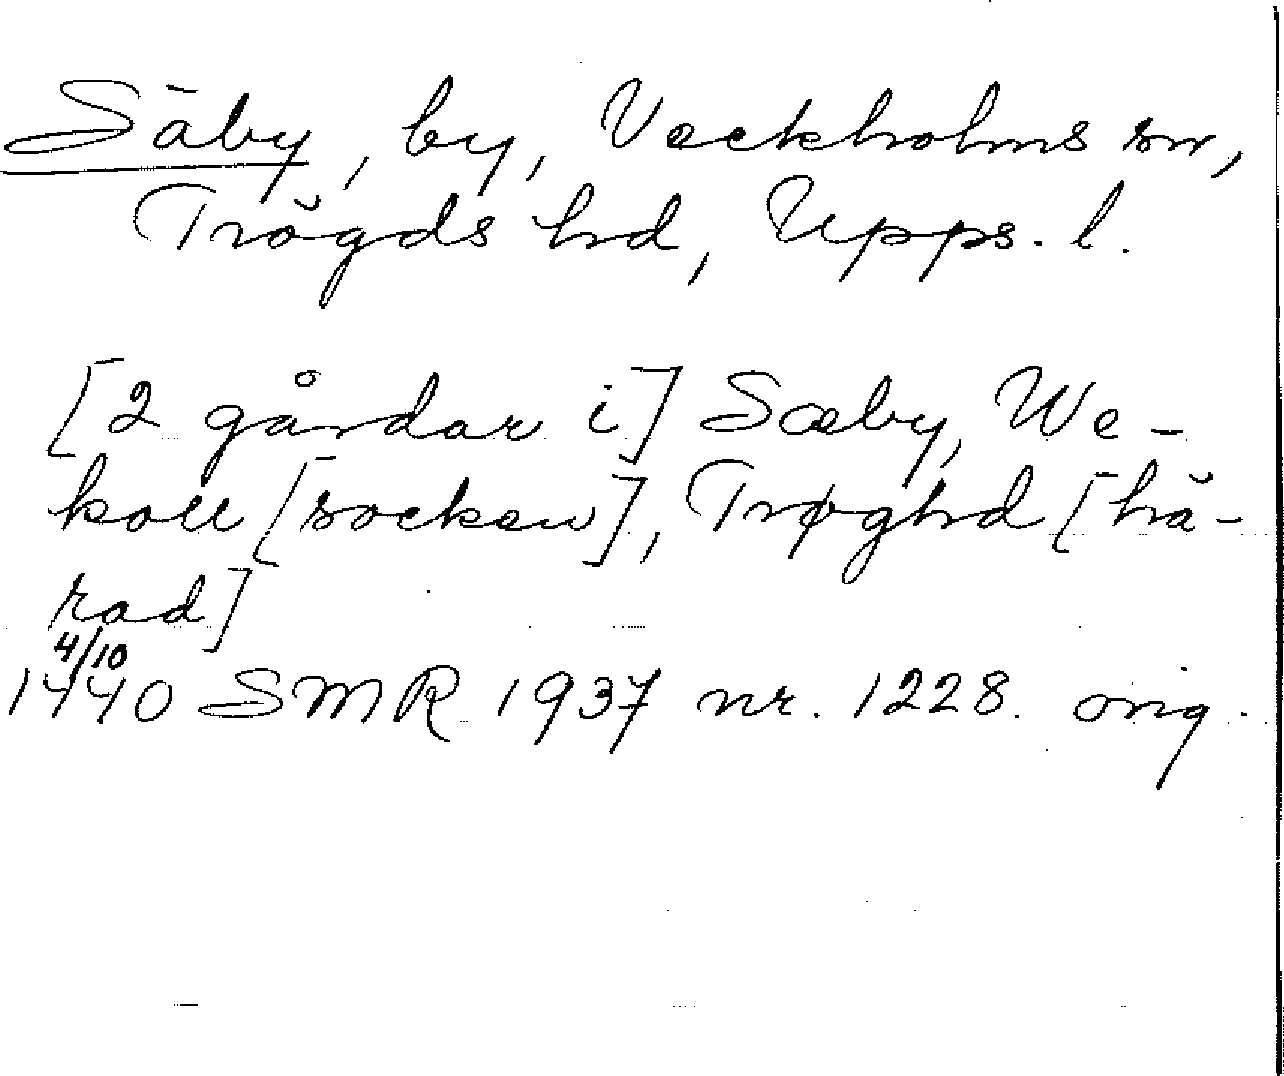 Säby, by, Veckholms sn,
Trögds hd, Upps. l.
[2 gårdar i] Sæby, We-
koll [socken], Trøghd [hä-
rad]
4/10
1440 SMR 1937 nr. 1228. orig.